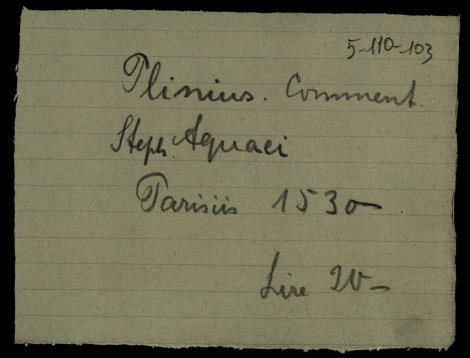 5-110-103
Plinius. Comment.
Steph. Aquaei
Parisiis 1530
Lire 20-